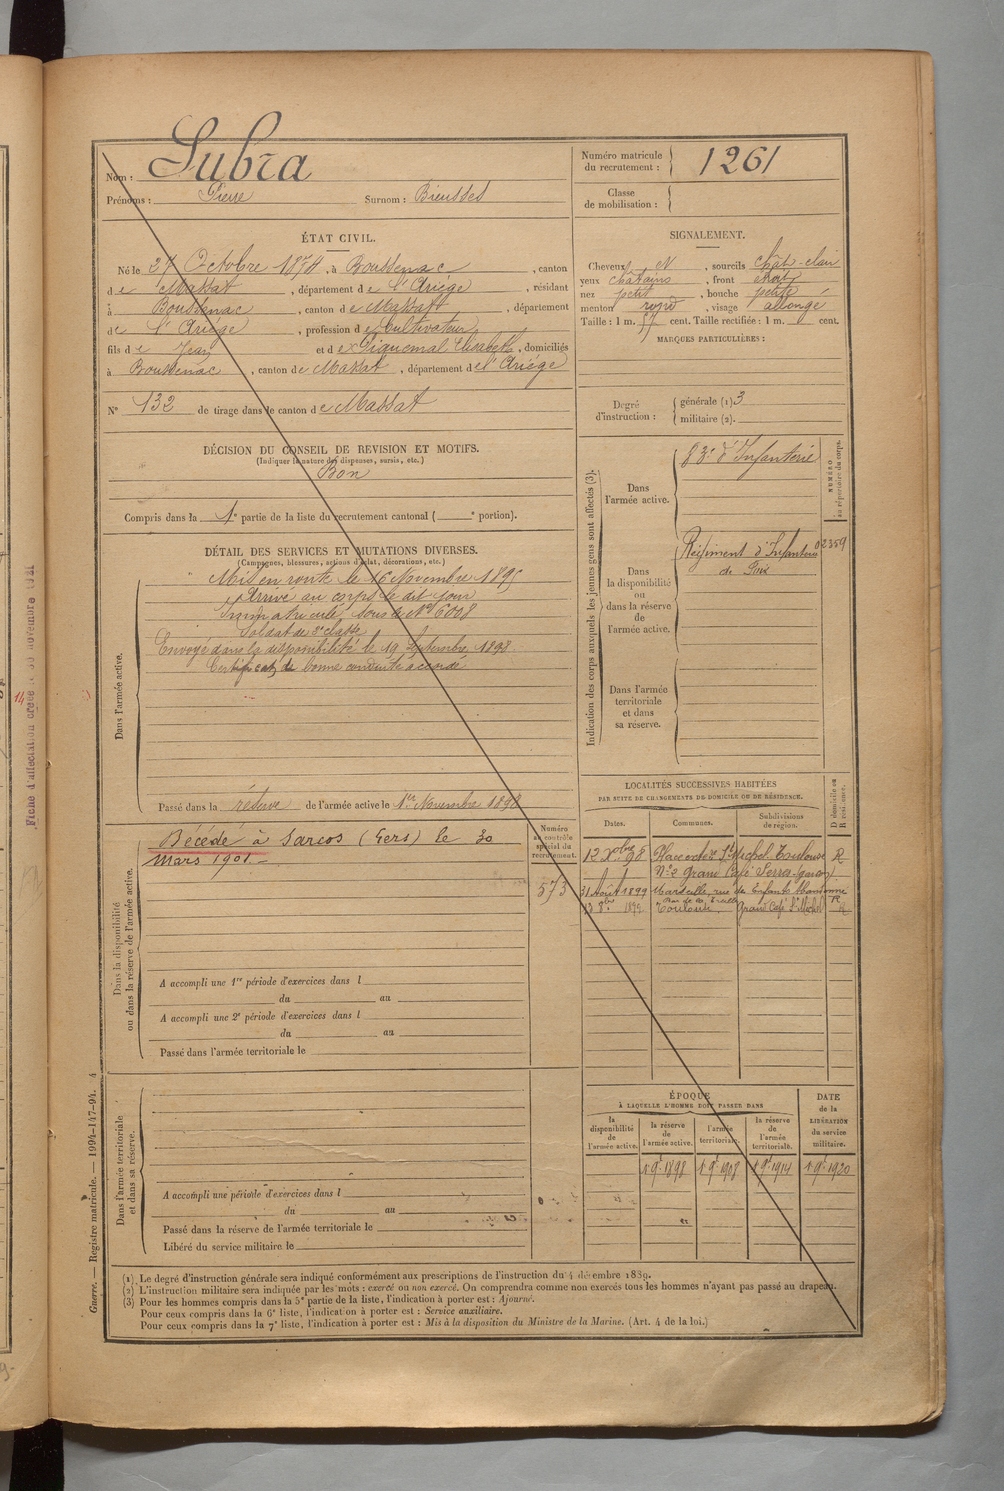 Nom : Subra
Prénoms : Pierre Surnom : Bieusses
Numéro matricule du recrutement : 1261
Classe de mobilisation :
ÉTAT CIVIL.
Né le 27 Octobre 1874, à Boussenac, canton
de Massat, département de l'Ariège, résidant
à Boussenac, canton de Massat, département
de l'Ariège, profession de Cultivateur
fils de Jean et de Piquemal Elisabeth, domiciliés
à Boussenac, canton de Massat, département de l'Ariège
N° 132 de tirage dans le canton de Massat
SIGNALEMENT.
Cheveux N, sourcils chât-clair
yeux châtains, front étroit
nez petit, bouche petite
menton rond, visage allongé
Taille : 1 m. 57 cent. Taille rectifiée : 1 m. cent.
MARQUES PARTICULIÈRES :
Degré d'instruction : générale (1). 3
militaire (2).
DÉCISION DU CONSEIL DE REVISION ET MOTIFS.
(Indiquer la nature des dispenses, sursis, etc.)
Bon
Compris dans la 1e partie de la liste du recrutement cantonal ( e portion).
DÉTAIL DES SERVICES ET MUTATIONS DIVERSES.
(Campagnes, blessures, actions d'éclat, décorations, etc.)
Dans l'armée active.
Mis en route le 16 Novembre 1895
Arrivé au corps le dit jour
Immatriculé sous le No 6008
Soldat de 2e classe
Envoyé dans la disponibilité le 19 Septembre 1898
Certificat de bonne conduite accordé
Passé dans la réserve de l'armée active le 1er Novembre 1898
Indication des corps auxquels les jeunes gens sont affectés (3).
NUMÉRO au répertoire du corps.
Dans l'armée active.
83e d'Infanterie
Dans la disponibilité ou dans la réserve de l'armée active.
Régiment d'Infanterie 02359
de Foix
Dans l'armée territoriale et dans sa réserve.
Dans la disponibilité ou dans la réserve de l'armée active.
Décédé à Sarcos (Gers) le 30
Mars 1901
Numéro au contrôle spécial du recrutement.
573
A accompli une 1re période d'exercices dans l
du au
A accompli une 2e période d'exercices dans l
du au
Passé dans l'armée territoriale le
LOCALITÉS SUCCESSIVES HABITÉES
PAR SUITE DE CHANGEMENTS DE DOMICILE OU DE RÉSIDENCE.
Dates. Communes. Subdivisions de région. D domicile ou R résidence.
12 Xbre 98 Place St Michel Toulouse R
No 2 Grand Café Serres (garçon)
31 Août 1899 Marseille, rue
13 8bre 1899 Toulouse, Grand Café St Michel R
Dans l'armée territoriale et dans sa réserve.
A accompli une période d'exercices dans l
du au
Passé dans la réserve de l'armée territoriale le
Libéré du service militaire le
ÉPOQUE
À LAQUELLE L'HOMME DOIT PASSER DANS
la disponibilité de l'armée active. la réserve de l'armée active. l'armée territoriale. la réserve de l'armée territoriale.
DATE de la LIBÉRATION du service militaire.
1 9e 1898 1 9e 1908 1 9e 1914 1 9e 1920
(1) Le degré d'instruction générale sera indiqué conformément aux prescriptions de l'instruction du 4 décembre 1889.
(2) L'instruction militaire sera indiquée par les mots : exercé ou non exercé. On comprendra comme non exercés tous les hommes n'ayant pas passé au drapeau.
(3) Pour les hommes compris dans la 5e partie de la liste, l'indication à porter est : Ajourné.
Pour ceux compris dans la 6e liste, l'indication à porter est : Service auxiliaire.
Pour ceux compris dans la 7e liste, l'indication à porter est : Mis à la disposition du Ministre de la Marine. (Art. 4 de la loi.)
Guerre. — Registre matricule. — 1994-147-94. 4
Fiche d'affectation créée le 30 novembre 1921
14